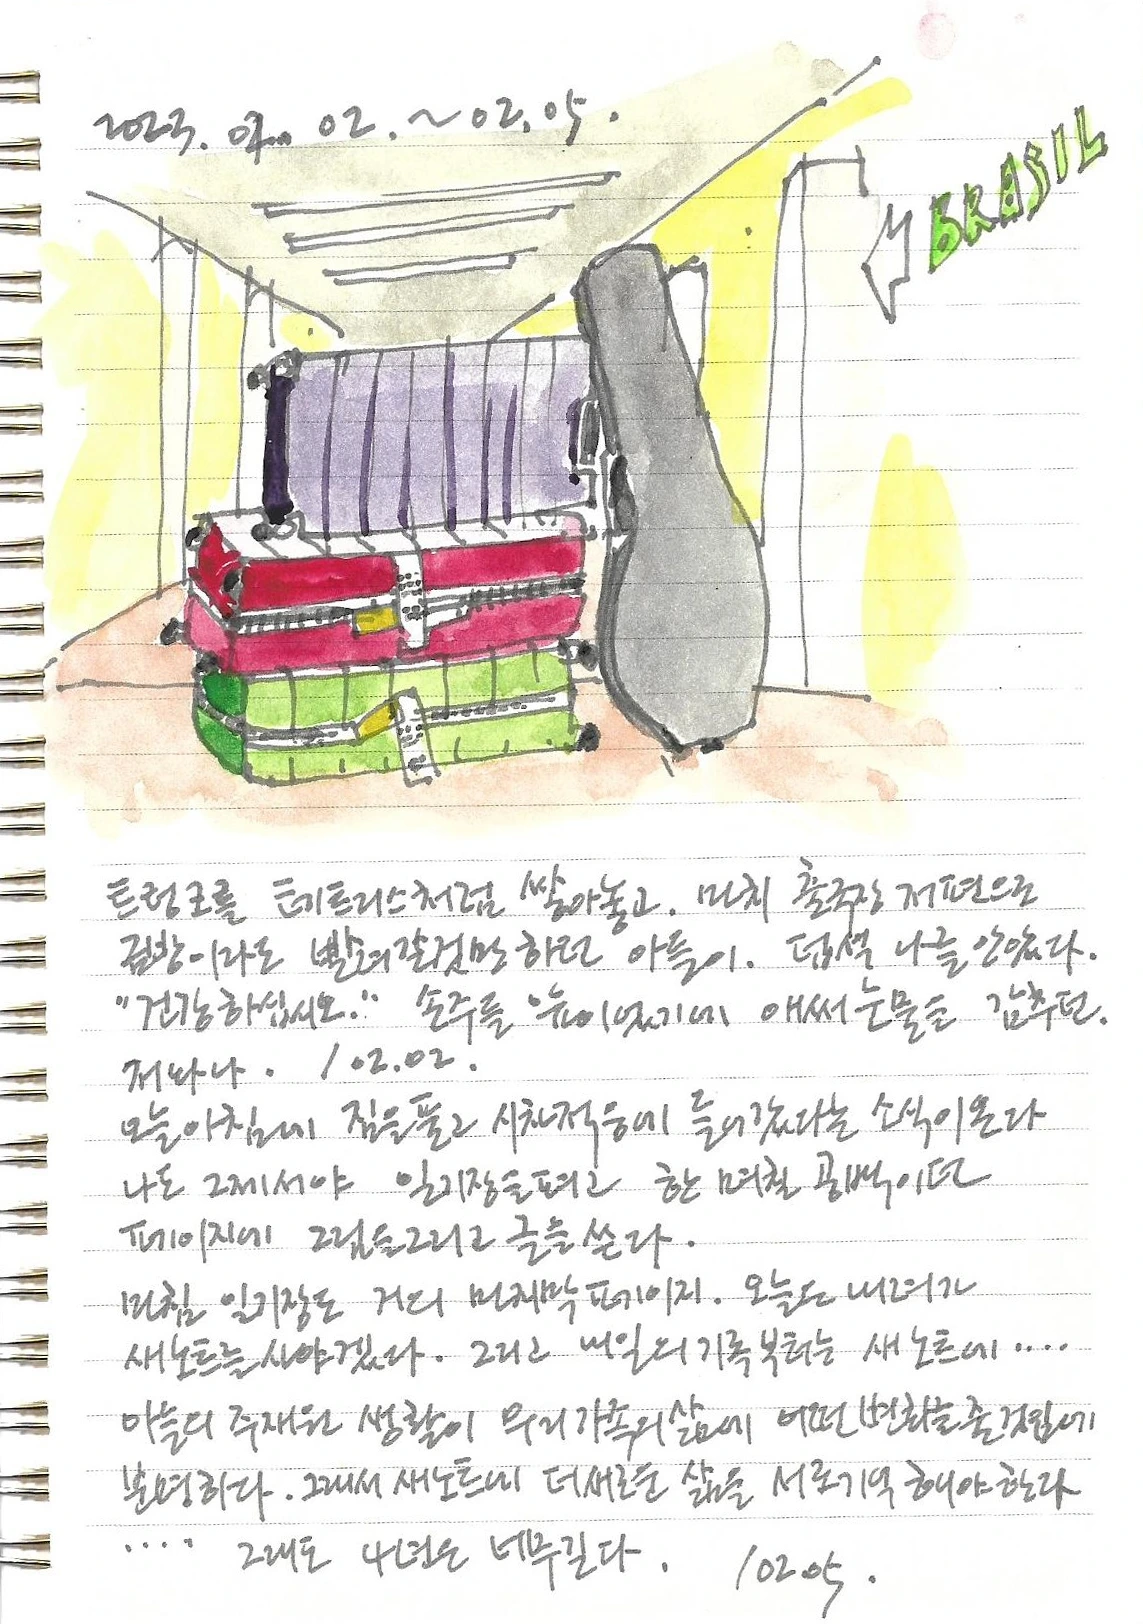 2023. 02. ~ 02. 05.
BRASIL
트렁크를 테트리스처럼 쌓아놓고. 마치 출국장 저편으로
집랑이라도 벌여질것만 하던 아들이. 덥석 나를 안았다.
"건강하십시오." 손주를 애써 눈물을 감추던.
저나나. / 02.02.
오늘아침에 짐을풀고 시차적응에 들어갔다는 소식이온다
나도 그제서야 일기장을펴고 한 며칠 공백이던
페이지에 그림을그리고 글을 쓴다.
마침 일기장도 거의 마지막페이지. 오늘은 내려가
새노트를 사야겠다. 그리고 내일의 기록부터는 새 노트에 ····
아들의 주재원 생활이 우리가족의 삶에 어떤변화를 줄것임에
분명하다. 그래서 새노트에 더새로운 삶을 서로기억 해야한다
···· 그래도 4년은 너무길다. / 02.05.